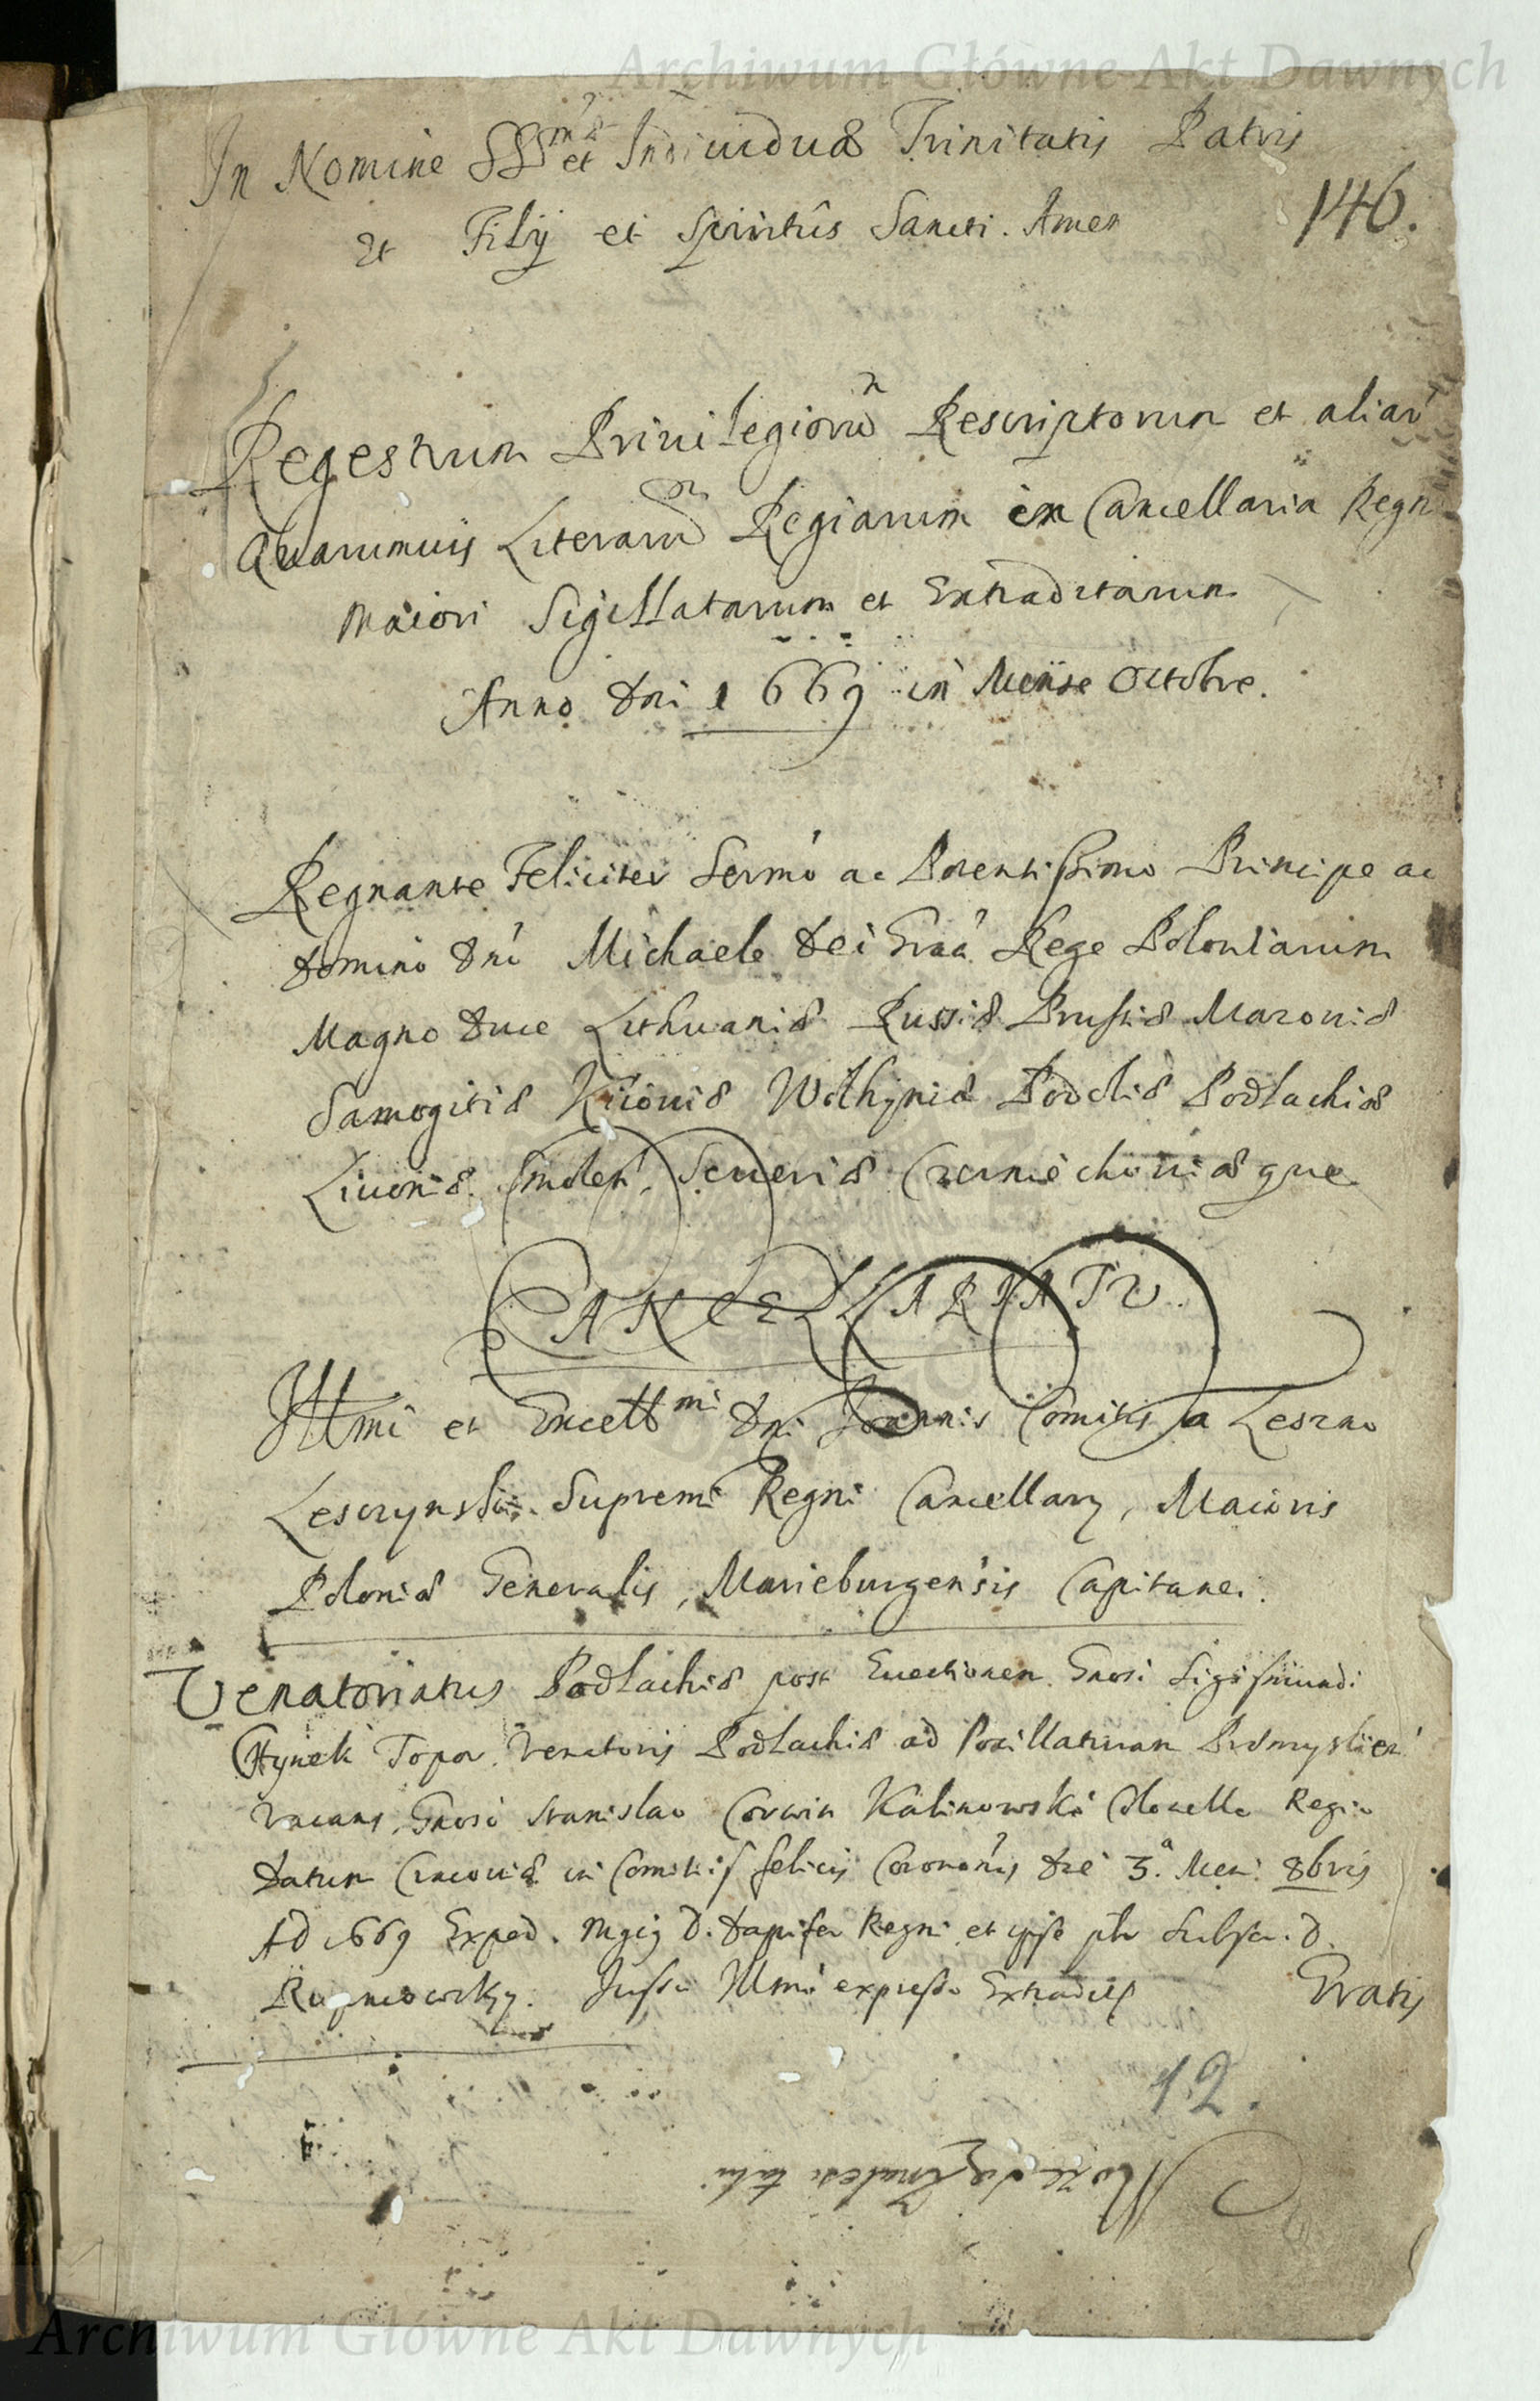 Archiwum Główne Akt Dawnych
In Nomine SSmæ et Indiuiduæ Trinitatis Patris
et Filij et Spiritûs Sancti. Amen
146.
Regestrum Priuilegiorũ Rescriptorum et aliar
Quarumuis Literarũ Regiarum ex Cancellaria Regn
Maiori Sigillatarum et Extraditarum
Anno Dni 1669 in Mense Octobre.
Regnante Feliciter Sermo ac Potentissimo Principe ac
Domino Dno Michaele Dei Graa Rege Poloniarum
Magno Duce Lithuaniæ Russiæ Prussiæ Mazouiæ
Samogitiæ Kiiouiæ Wolhyniæ Podoliæ Podlachiæ
Liuoniæ Smolen. Seueriæ Czerniechouiæque
CANCELLARIATU.
Illmi et Excellmi Dni Joannis Comitis a Leszno
Lesczynski Supremi Regni Cancellarij, Maioris
Poloniæ Generalis, Marieburgensis Capitanei.
Venatoriatus Podlachiæ post Euectionem Gnosi Sigismundi
Hynek Topor Venatoris Podlachiæ ad Pocillaturam Præmyslien
vacans, Gnoso Stanislao Corwin Kalinowski Regio
Datum Cracouiæ in Comitijs felicis Corononis die 3.a Men. 8bris
AD 1669 Exped. Mgcus D. Dapifer Regni et ipse Subscr. D.
Jussu Illmi expresso Extradit Gratis
12.
Może się
Archiwum Główne Akt Dawnych